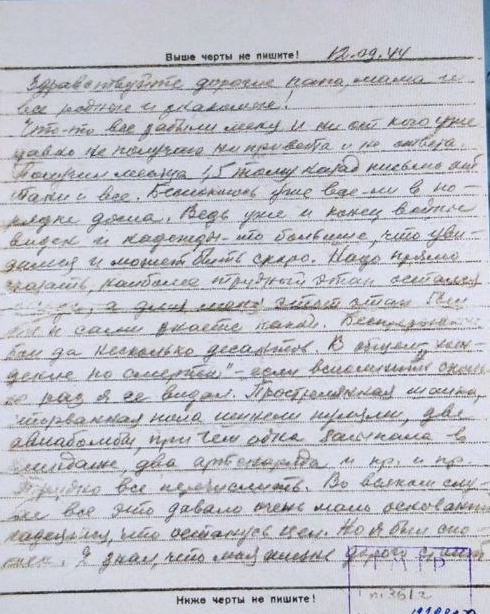 Выше черты не пишите! 12.09.44
Здравствуйте дорогие папа, мама и
все родные и знакомые!
Что-то все забыли меня и ни от кого уже
давно не получаю ни привета и ни ответа.
Получил месяца 1,5 тому назад письмо от
Таки и все. Беспокоюсь уже все-ли в по-
рядке дома. Ведь уже и конец войны
виден и надежды-то больше, что уви-
димся и может быть скоро. Надо прямо
сказать, наиболее трудный этап остался
а для меня этот этап был
и сами знаете каков.
бои да несколько десантов. В общем "хож-
дение по смертям" - если вспомнить сколь-
ко раз я её видел. Простреленная шапка,
оторванная пола шинели пулями, две
авиабомбы, при чём одна засыпала в
блиндаже, два артснаряда и пр. и пр.
Трудно все перечислить. Во всяком слу-
чае все это давало очень мало оснований
надеяться, что останусь цел. Но я был спо-
коен. Я знал, что моя жизнь дорого
Ниже черты не пишите!